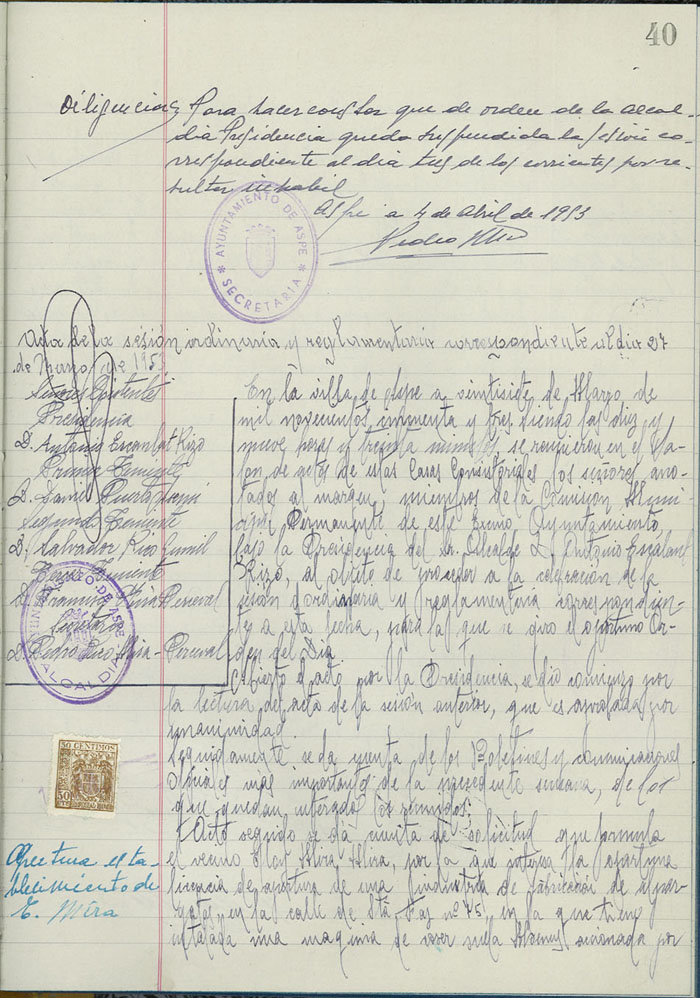 40
Diligencia; Para hacer constar que de orden de la Alcal-
dia Presidencia queda suspendida la sesion co-
rrespondiente al dia tres de los corrientes por re-
sultar inhabil
Aspe a 4 de Abril de 1953
Pedro
* AYUNTAMIENTO DE ASPE * SECRETARIA
Acta de la sesión ordinaria y reglamentaria correspondiente al dia 27
de Marzo de 1953
Señores Asistentes
Presidencia
D. Antonio Escanlat Rizo
Primer Teniente
D. Puerto
Segundo Teniente
D. Salvador Rico Gumil
Tercer Teniente
D. Francisco Perceval
D. Pedro Perceval
AYUNTAMIENTO DE ASPE * ALCALDIA
En la villa de Aspe a veintisiete de Marzo de
mil novecientos cincuenta y tres siendo las diez y
nueve horas y treinta minutos se reunieron en el Sa-
lon de actos de estas Casas Consistoriales los señores ano-
tados al margen, miembros de la Comision Muni-
cipal Permanente de este Excmo Ayuntamiento,
bajo la Presidencia del Sr. Alcalde D. Antonio
Rizo, al objeto de proceder a la celebración de la
sesion ordinaria y reglamentaria correspondien-
te a esta fecha, para la que se giro el oportuno Or-
den del Dia
Abierto el acto por la Presidencia, se dio comienzo por
la lectura del acta de la sesion anterior, que es aprobada por
unanimidad
Seguidamente se da cuenta de los Boletines y comunicaciones
oficiales mas importantes de la precedente semana, de los
que quedan enterados los reunidos.
50 CENTIMOS
50
Acto seguido se dá cuenta de solicitud que formula
el vecino Eloy Mira Mira, por la que interesa la oportuna
licencia de apertura de una industria de fabricación de alpar-
gatas en la calle de Sta Faz nº 75, en la que tiene
instalada una maquina de coser accionada por
Apertura esta-
blecimiento de
E. Mira